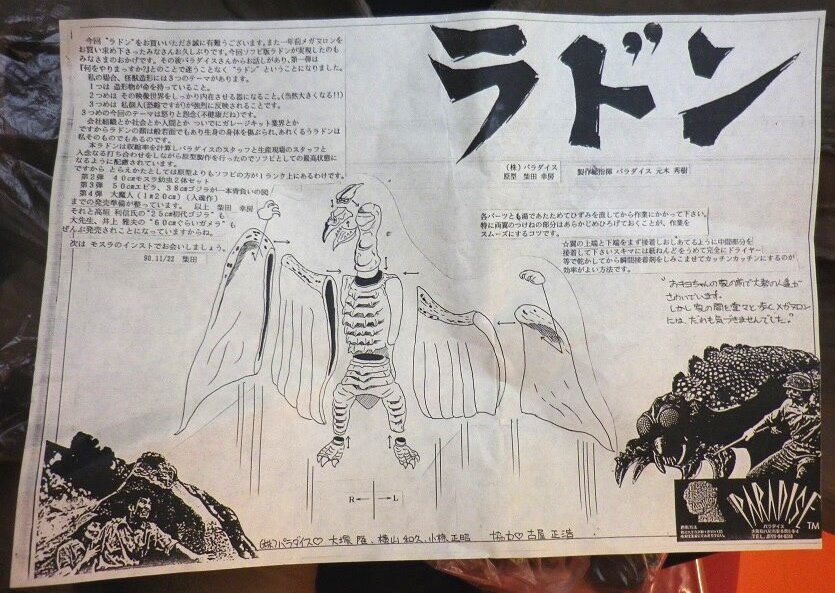 今回"ラドン"をお買いいただき誠に有難うございます。また一年前メガマロンを
お買い求め下さったみなさんお久しぶりです。今回ソフビ版ラドンが実現したのも
みなさまのおかげです。その後パラダイスさんからお話しがあり、第一弾は
『何をやりまっすか?』とのことで迷うことなく"ラドン"ということになりました。
私の場合、怪獣造形には3つのテーマがあります。
1つは 造形物が命を持っていること。
2つめは その映像世界をしっかり内在させる器になること。(当然大きくなる!!)
3つめは 私個人(恐縮ですが)が強烈に反映されることです。
3つめの今回のテーマは怒りと怨念(不健康だね)です。
会社組織とか社会とか人間とか ついでにガレージキット業界とか
ですからラドンの顔は般若面でもあり生身の身体を傷ぶられ、あれくるうラドンは
私そのものでもあるのです。
本ラドンは収縮率を計算しパラダイスのスタッフと生産現場のスタッフと
入念なる打ち合わせをしながら原型製作を行ったのでソフビとしての最高状態に
なるように配慮されています。
ですから とらえかたとしては原型よりもソフビの方が1ランク上にあるわけです。
第2弾 40㎝モスラ幼虫2体セット
第3弾 50㎝エビラ、38㎝ゴジラが一本背負いの図
第4弾 大魔人(1m20㎝)(入魂作)
までの発売準備が整っています。 以上 柴田 幸房
それと高垣 利信氏の"25㎝初代ゴジラ"も
大先生、井上 雅夫の"60㎝ぐらいガメラ"も
ぜんぶ発売されることになっていますからね。
次は モスラのインストでお会いしましょう。
90.11/22 柴田
ラドン
(株)パラダイス
原型 柴田 幸房
製作総指揮 パラダイス 元木 秀樹
各パーツとも湯であたためてひずみを直してから作業にかかって下さい。
特に両翼のつけねの部分はあらかじめひろげておくことが、作業を
スムーズにするコツです。
右翼の上端と下端をまず接着しおしあてるように中間部分を
接着して下さいスキマには紙ねんどをうめて完全にドライヤー
等で乾かしてから瞬間接着剤をしみこませてカッチンカッチンにするのが
効率がよい方法です。
"おキヨちゃんの家の前で大勢の人達が
さわいでいます。
しかし家の間を堂々と歩くメガマロン
には、だれも気づきませんでした。"
R
L
PARADISE
TM
パラダイス
(株)パラダイス♡ 大塚 隆、横山 和久、小林 正昭 協力♡ 古屋 正浩